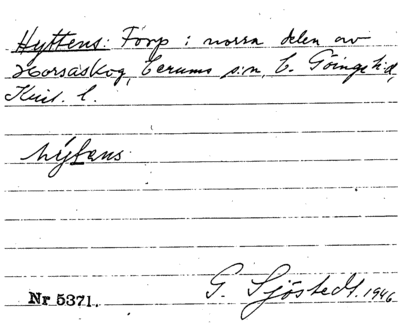 Hyttens: Torp i norra delen av
Horsaskog, Verums s:n, V. Göinge h:d,
Krist. l.
hýtəns
Nr 5371.
G. Sjöstedt. 1946